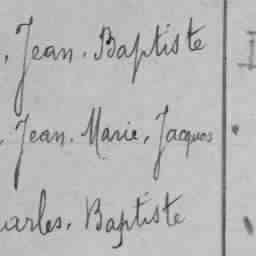 , Jean. Baptiste
, Jean. Marie, Jacques
arles. Baptiste